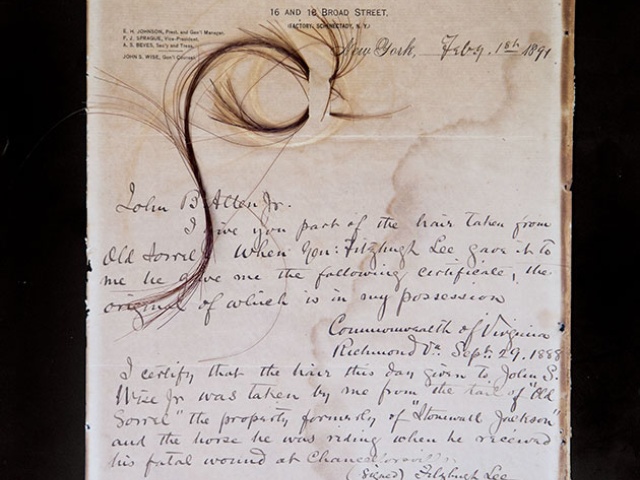 16 AND 18 BROAD STREET,
(FACTORY, SCHENECTADY, N. Y.)
E. H. JOHNSON, Prest. and Gen'l Manager.
F. J. SPRAGUE, Vice-President.
A. S. BEVES, Sec'y and Treas.
JOHN S. WISE, Gen'l Counsel.
New York, Feby. 1st 1891
John B Allen Jr.
I give you part of the hair taken from
Old Sorrel. When Gen: Fitzhugh Lee gave it to
me he gave me the following certificate, the
original of which is in my possession
Commonwealth of Virginia
Richmond Va. Sept. 29, 1888
I certify that the hair this day given to John S.
Wise Jr was taken by me from the tail of "Old
Sorrel" the property formerly of "Stonewall Jackson"
and the horse he was riding when he received
his fatal wound at Chancellorsville
(Signed) Fitzhugh Lee